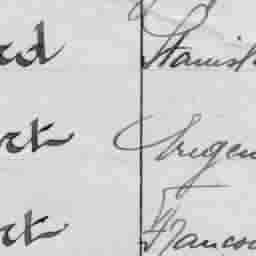 rd Stanisl
rt Eugen
rt Francoi